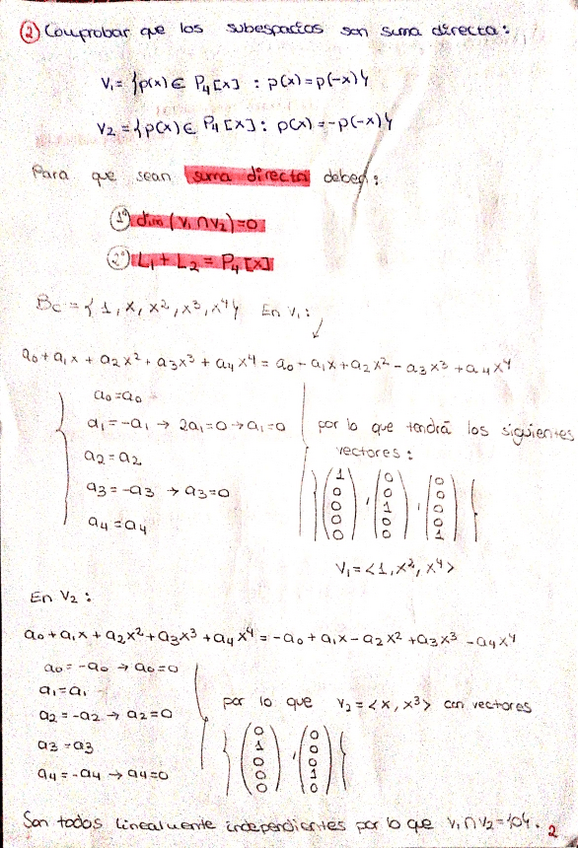 ② Comprobar que los subespacios son suma directa:
V₁ = {p(x) ∈ P₄[x] : p(x) = p(-x)}
V₂ = {p(x) ∈ P₄[x] : p(x) = -p(-x)}
Para que sean suma directa deben:
1º dim (V₁ ∩ V₂) = 0
2º L₁ + L₂ = P₄[x]
Bc = {1, x, x², x³, x⁴} En V₁:
a₀ + a₁x + a₂x² + a₃x³ + a₄x⁴ = a₀ - a₁x + a₂x² - a₃x³ + a₄x⁴
a₀ = a₀
a₁ = -a₁ → 2a₁ = 0 → a₁ = 0
a₂ = a₂
a₃ = -a₃ → a₃ = 0
a₄ = a₄
por lo que tendrá los siguientes
vectores:
{(1 0 0 0 0), (0 0 1 0 0), (0 0 0 0 1)}
V₁ = <1, x², x⁴>
En V₂:
a₀ + a₁x + a₂x² + a₃x³ + a₄x⁴ = -a₀ + a₁x - a₂x² + a₃x³ - a₄x⁴
a₀ = -a₀ → a₀ = 0
a₁ = a₁
a₂ = -a₂ → a₂ = 0
a₃ = a₃
a₄ = -a₄ → a₄ = 0
por lo que V₂ = <x, x³> con vectores
{(0 1 0 0 0), (0 0 0 1 0)}
Son todos linealmente independientes por lo que V₁ ∩ V₂ = {0}.
2